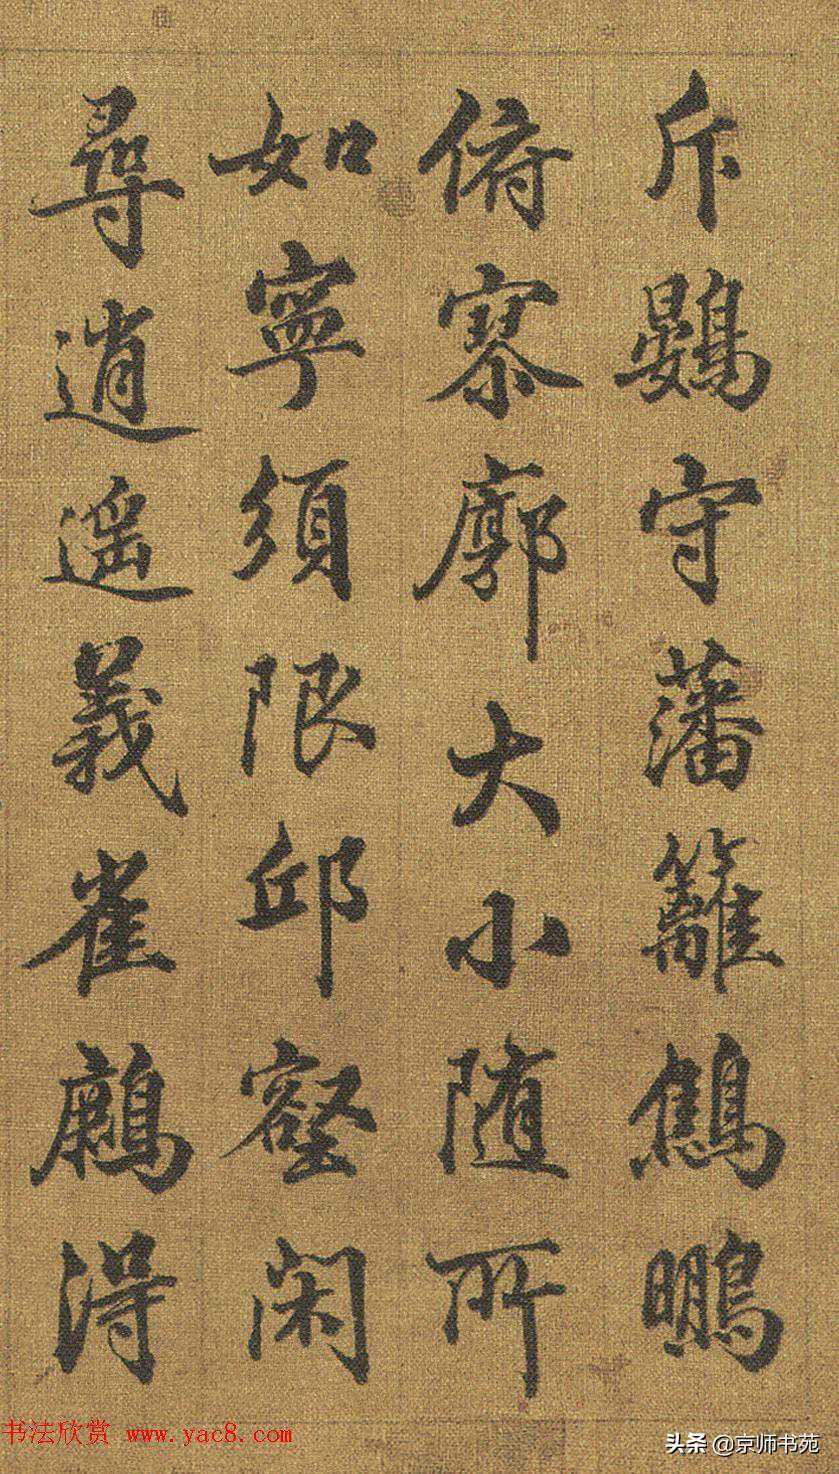 斥鷃守藩籬鷦鵬
俯寥廓大小随所
如寧須限邱壑閑
尋逍遥義雀得
书法欣赏 www.yac8.com
头条 @京师书苑